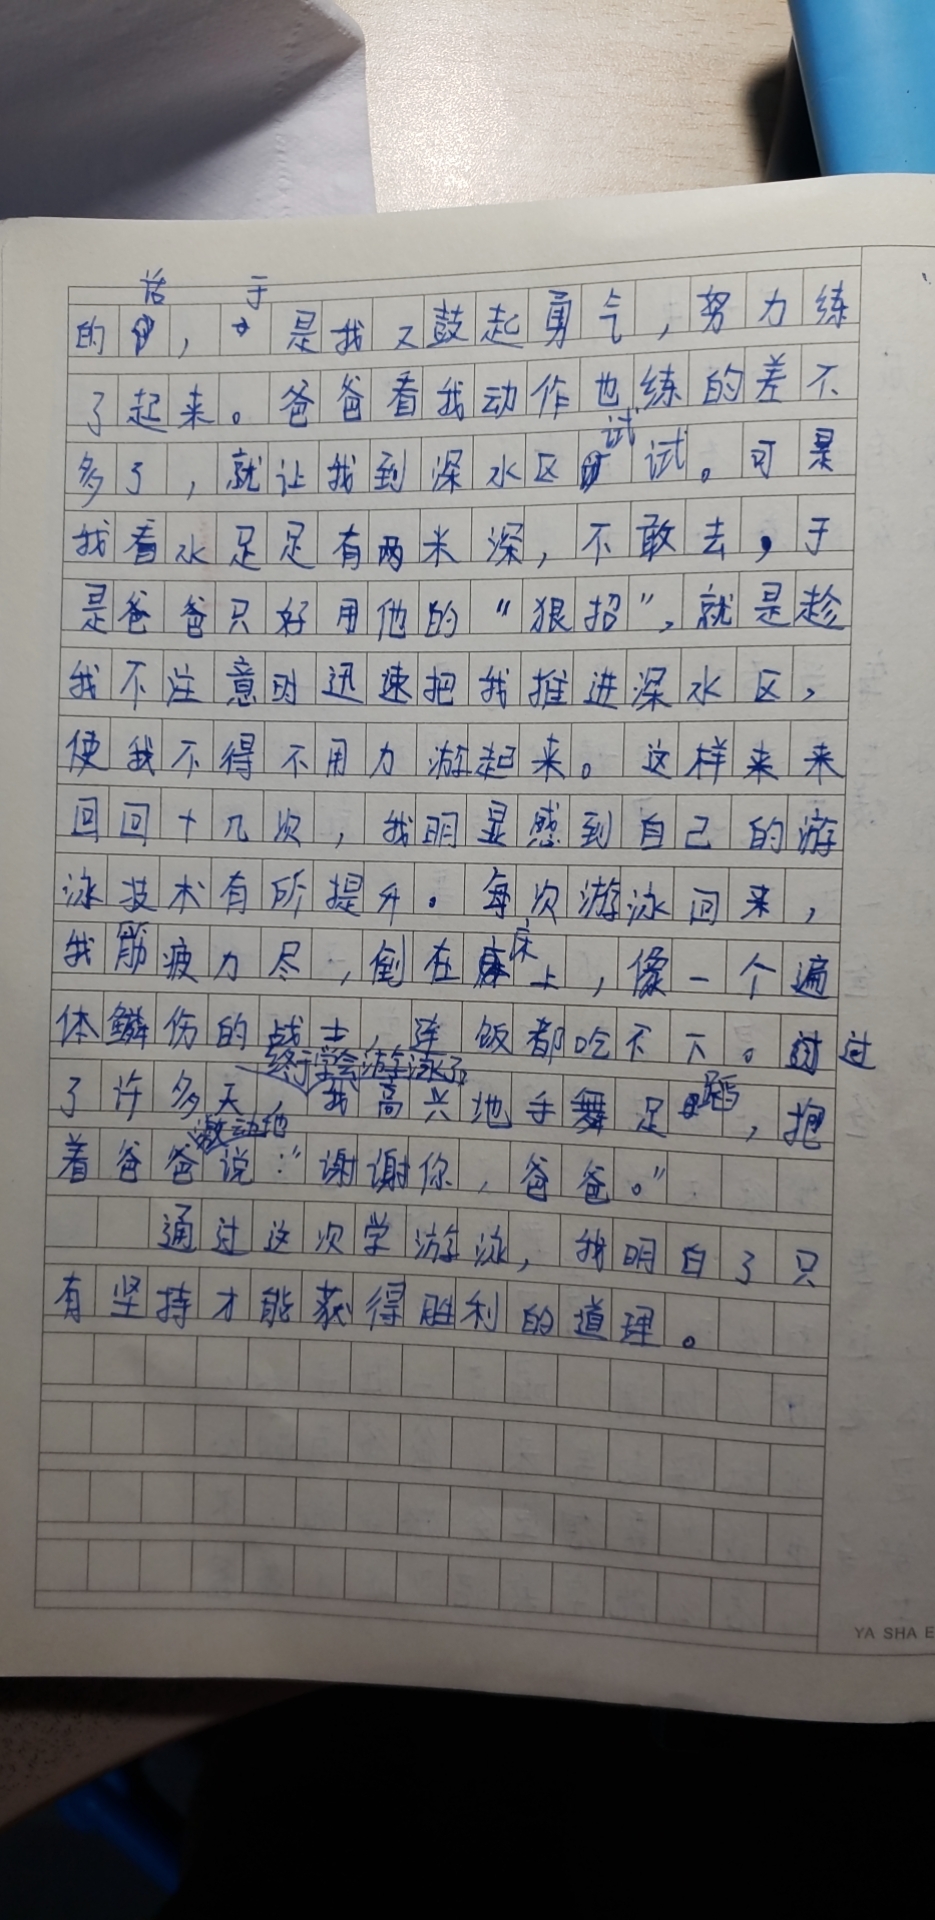 的话，于是我又鼓起勇气，努力练
了起来。爸爸看我动作也练的差不
多了，就让我到深水区试试。可是
我看水足足有两米深，不敢去，于
是爸爸只好用他的“狠招”，就是趁
我不注意时迅速把我推进深水区，
使我不得不用力游起来。这样来来
回回十几次，我明显感到自己的游
泳技术有所提升。每次游泳回来，
我筋疲力尽，倒在床上，像一个遍
体鳞伤的战士，连饭都吃不下。过
了许多天，我终于学会游泳了，高兴地手舞足蹈，抱
着爸爸激动地说：“谢谢你，爸爸。”
通过这次学游泳，我明白了只
有坚持才能获得胜利的道理。
YA SHA E